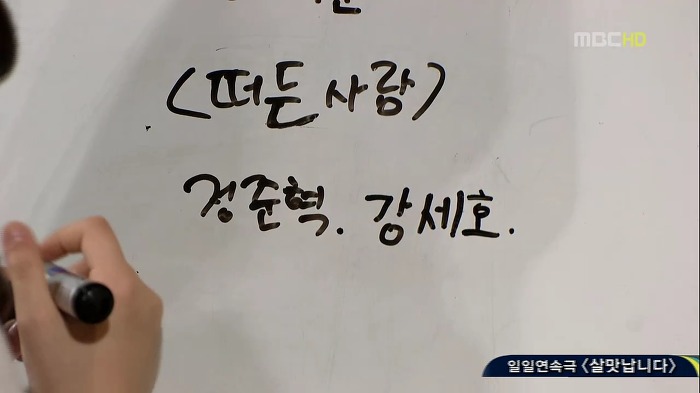 MBC HD
(떠든 사람)
정준혁. 강세호.
일일연속극 <살맛납니다>